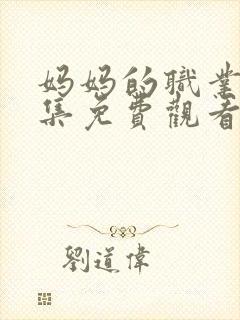 妈妈的職業
集免費觀看
劉道偉